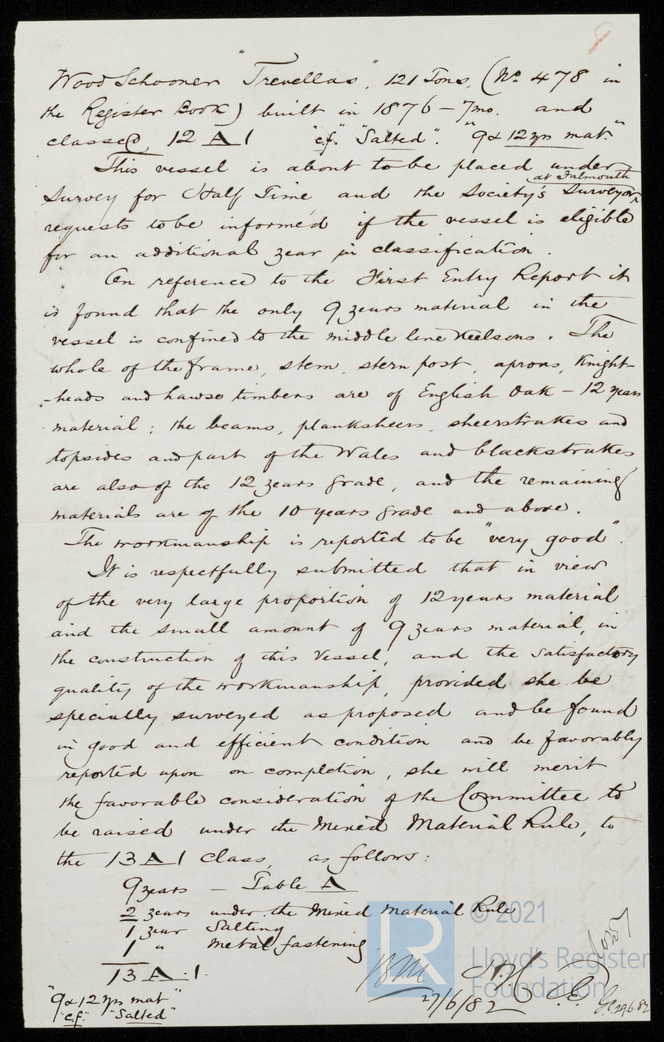 Wood Schooner "Trevellas", 121 Tons, (No 478 in
the Register Book) built in 1876 - 7mo. and
classed, 12 A 1 "c.f." "Salted". "9 & 12 yrs mat."
This vessel is about to be placed under
at Falmouth
Survey for Half Time and the Society's Surveyor
requests to be informed if the vessel is eligible
for an additional year in classification.
On reference to the First Entry Report it
is found that the only 9 years material in the
vessel is confined to the middle line Keelsons. The
whole of the frame, stem, stern post, aprons, Knight-
-heads and hawse timbers are of English Oak - 12 years
material; the beams, planksheers, sheerstrakes and
topsides and part of the Wales and blackstrakes
are also of the 12 years grade, and the remaining
materials are of the 10 years grade and above.
The workmanship is reported to be "very good".
It is respectfully submitted that in view
of the very large proportion of 12 years material
and the small amount of 9 years material, in
the construction of this Vessel, and the satisfactory
quality of the workmanship, provided she be
specially surveyed as proposed and be found
in good and efficient condition and be favorably
reported upon on completion, she will merit
the favorable consideration of the Committee to
be raised under the Mixed Material Rule, to
the 13 A 1 Class, as follows:
9 years - Table A
2 years under the Mixed Material Rule
1 year Salting
1 " Metal fastening
13 A. 1.
"9 & 12 yrs mat"
"c.f." "Salted"
27/6/82
29.6.82
© 2021
LR
Lloyd's Register
Foundation